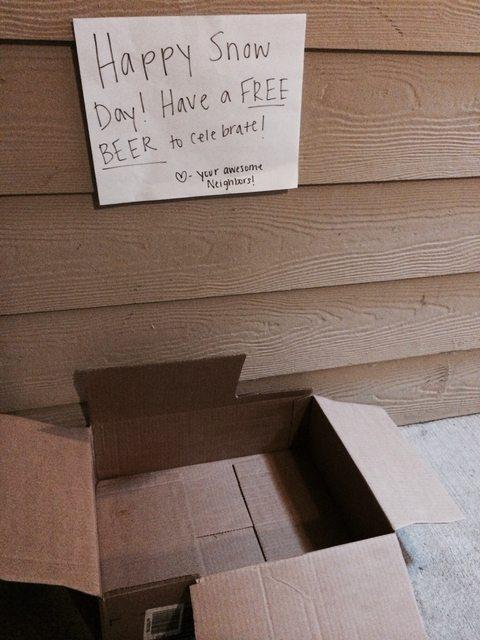 Happy Snow
Day! Have a FREE
BEER to celebrate!
♡- your awesome
Neighbors!